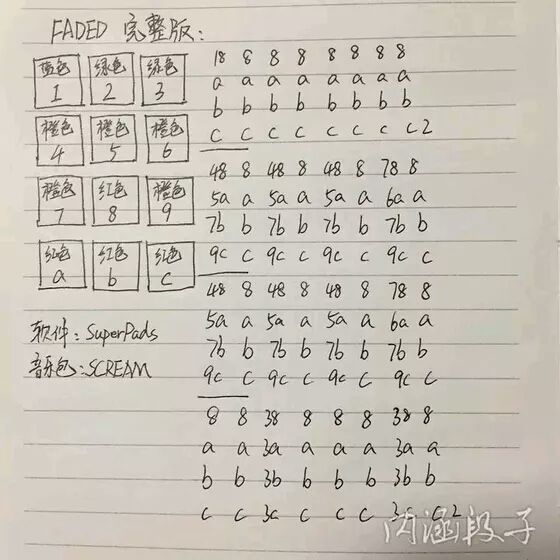 FADED 完整版:
蓝色 绿色 绿色
1 2 3
橙色 橙色 橙色
4 5 6
橙色 红色 橙色
7 8 9
红色 红色 红色
a b c
软件: SuperPads
音乐包: SCREAM
18 8 8 8 8 8 8 8
a a a a a a a a
b b b b b b b b
c c c c c c c c2
48 8 48 8 48 8 78 8
5a a 5a a 5a a 6a a
7b b 7b b 7b b 7b b
9c c 9c c 9c c 9c c
48 8 48 8 48 8 78 8
5a a 5a a 5a a 6a a
7b b 7b b 7b b 7b b
9c c 9c c 9c c 9c c
8 8 38 8 8 8 38 8
a a 3a a a a 3a a
b b 3b b b b 3b b
c c 3c c c c 3c c2
内涵段子